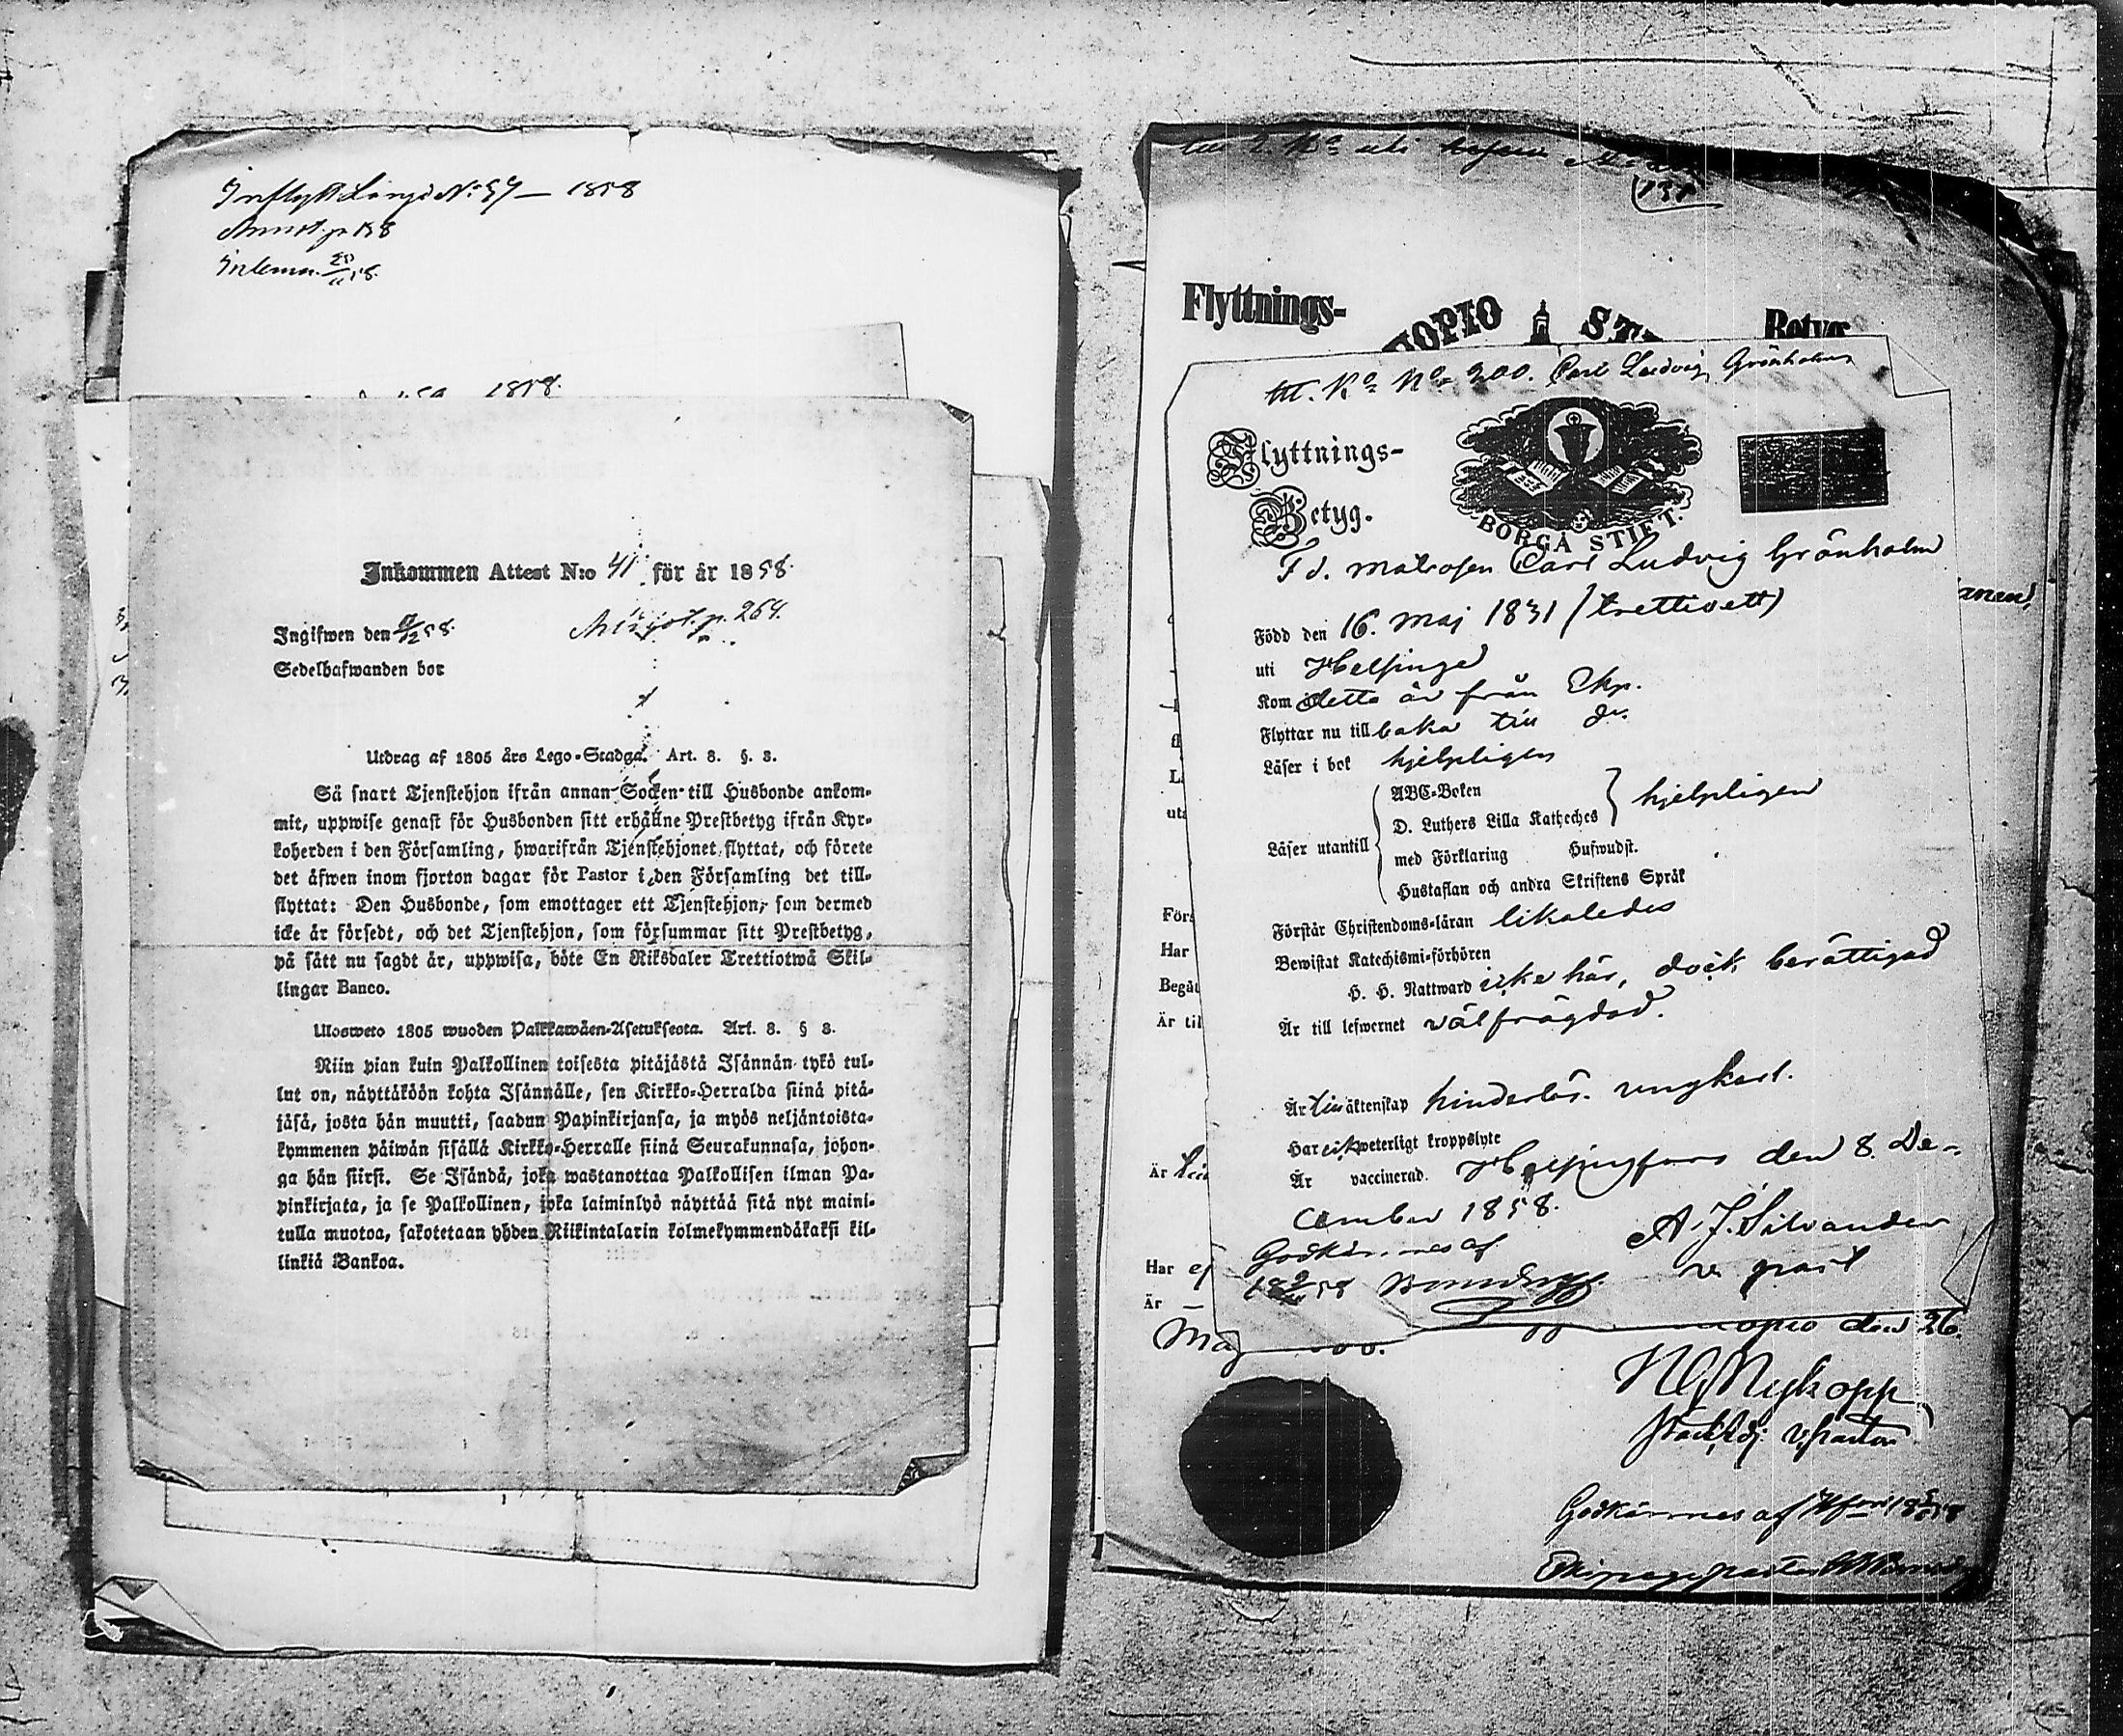 Inflytt. Längd No 57 — 1858
1858.
Inkommen Attest N:o 41 för år 1858.
Ingifwen den 9/12 58.
p. 264.
Sedelhafwanden bor
Utdrag af 1805 års Lego-Stadga. Art. 8. §. 3.
Så snart Tjenstehjon ifrån annan Socken till Husbonde ankom-
mit, uppwise genast för Husbonden sitt erhållne Prestbetyg ifrån Kyr-
koherden i den Församling, hwarifrån Tjenstehjonet flyttat, och förete
det äfwen inom fjorton dagar för Pastor i den Församling det till-
flyttat: Den Husbonde, som emottager ett Tjenstehjon, som dermed
icke är försedt, och det Tjenstehjon, som försummar sitt Prestbetyg,
på sätt nu sagdt är, uppwisa, böte En Riksdaler Trettiotwå Skil-
lingar Banco.
Ulosweto 1805 wuoden Palkkawäen-Asetuksesta. Art. 8. § 3.
Niin pian kuin Palkollinen toisesta pitäjästä Isännän tykö tul-
lut on, näyttäköön kohta Isännälle, sen Kirkko-Herralda siinä pitä-
jäsä, josta hän muutti, saadun Papinkirjansa, ja myös neljäntoista-
kymmenen päiwän sisällä Kirkko-Herralle siinä Seurakunnasa, johon-
ga hän siirsi. Se Isändä, joka wastanottaa Palkollisen ilman Pa-
pinkirjata, ja se Palkollinen, joka laiminlyö näyttää sitä nyt maini-
tulla muotoa, sakotetaan yhden Riikintalarin kolmekymmendäkaksi kil-
linkiä Bankoa.
Flyttnings- UOPIO ST Betyg
III. Ko No 200. Carl Ludvig Grönholm
Flyttnings-
Betyg.
BORGÅ STIFT.
Fd. matrosen Carl Ludvig Grönholm
Född den 16. Maj 1831 (trettioett)
uti Helsinge
Kom detta år från Ekp.
Flyttar nu till baka till do.
Läser i bok hjelpligen
Läser utantill
ABC-Boken
D. Luthers Lilla Katheches
med Förklaring Huswudst.
Hustaflan och andra Skriftens Språk
hjelpligen
Förstår Christendoms-läran likaledes
Bewistat Katechismi-förhören
H. H. Nattward icke här, dock berättigad
Är till lefwernet välfrägdad.
Är till äktenskap hinderlös ungkarl.
Har ej weterligt kroppslyte
Är vaccinerad. Helsingfors den 8. De-
cember 1858.
A. J. Silvander
v. past
Godkännes af
Förs
Har
Begåt
Är til
Är
Har ej
Är —
Maj
opio den 26
Nykopp
v. Pastor
Godkännes af